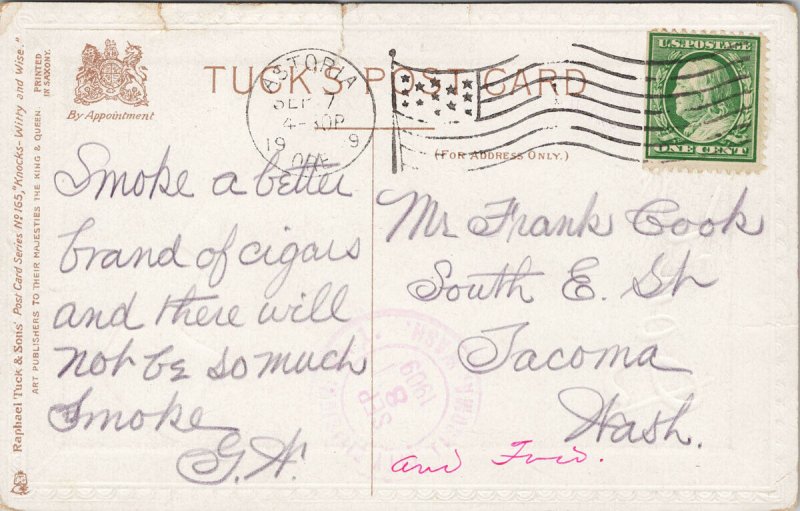 Raphael Tuck & Sons' Post Card Series Nº 165, "Knocks-Witty and Wise."
ART PUBLISHERS TO THEIR MAJESTIES THE KING & QUEEN
PRINTED
IN SAXONY.
By Appointment
TUCK'S POST CARD
(FOR ADDRESS ONLY.)
ASTORIA
SEP 7
4-30P
19 9
ORE
U.S. POSTAGE
ONE CENT
Smoke a better
brand of cigars
and there will
not be so much
Smoke
G.H.
Mr Frank Cook
South E. St
Tacoma
Wash.
SEP
8
1909
WASH.
and